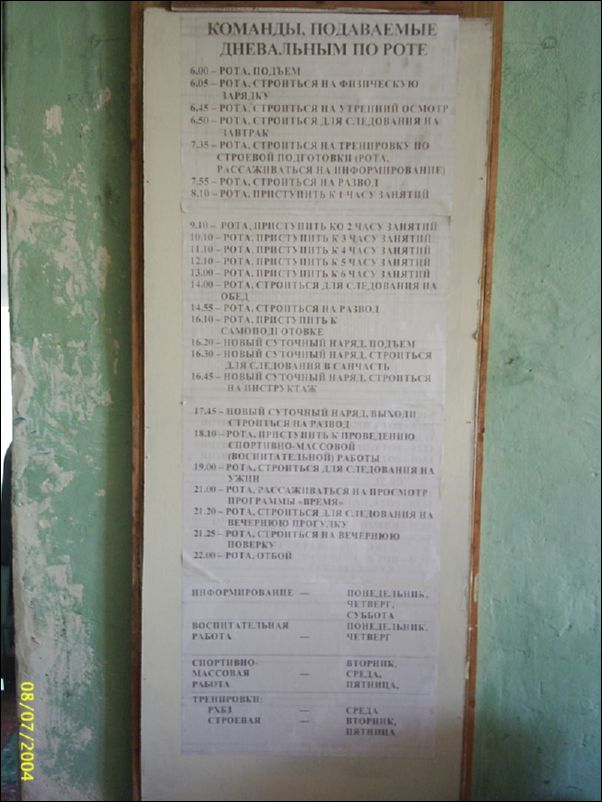 КОМАНДЫ, ПОДАВАЕМЫЕ
ДНЕВАЛЬНЫМ ПО РОТЕ
6.00 – РОТА, ПОДЪЕМ
6.05 – РОТА, СТРОИТЬСЯ НА ФИЗИЧЕСКУЮ
ЗАРЯДКУ
6.45 – РОТА, СТРОИТЬСЯ НА УТРЕННИЙ ОСМОТР
6.50 – РОТА, СТРОИТЬСЯ ДЛЯ СЛЕДОВАНИЯ НА
ЗАВТРАК
7.35 – РОТА, СТРОИТЬСЯ НА ТРЕНИРОВКУ ПО
СТРОЕВОЙ ПОДГОТОВКИ (РОТА,
РАССАЖИВАТЬСЯ НА ИНФОРМИРОВАНИЕ)
7.55 – РОТА, СТРОИТЬСЯ НА РАЗВОД
8.10 – РОТА, ПРИСТУПИТЬ К 1 ЧАСУ ЗАНЯТИЙ
9.10 – РОТА, ПРИСТУПИТЬ КО 2 ЧАСУ ЗАНЯТИЙ
10.10 – РОТА, ПРИСТУПИТЬ К 3 ЧАСУ ЗАНЯТИЙ
11.10 – РОТА, ПРИСТУПИТЬ К 4 ЧАСУ ЗАНЯТИЙ
12.10 – РОТА, ПРИСТУПИТЬ К 5 ЧАСУ ЗАНЯТИЙ
13.00 – РОТА, ПРИСТУПИТЬ К 6 ЧАСУ ЗАНЯТИЙ
14.00 – РОТА, СТРОИТЬСЯ ДЛЯ СЛЕДОВАНИЯ НА
ОБЕД
14.55 – РОТА, СТРОИТЬСЯ НА РАЗВОД
16.10 – РОТА, ПРИСТУПИТЬ К
САМОПОДГОТОВКЕ
16.20 – НОВЫЙ СУТОЧНЫЙ НАРЯД, ПОДЪЕМ
16.30 – НОВЫЙ СУТОЧНЫЙ НАРЯД, СТРОИТЬСЯ
ДЛЯ СЛЕДОВАНИЯ В САНЧАСТЬ
16.45 – НОВЫЙ СУТОЧНЫЙ НАРЯД, СТРОИТЬСЯ
НА ИНСТРУКТАЖ
17.45 – НОВЫЙ СУТОЧНЫЙ НАРЯД, ВЫХОДИ
СТРОИТЬСЯ НА РАЗВОД
18.10 – РОТА, ПРИСТУПИТЬ К ПРОВЕДЕНИЮ
СПОРТИВНО-МАССОВОЙ
(ВОСПИТАТЕЛЬНОЙ) РАБОТЫ
19.00 – РОТА, СТРОИТЬСЯ ДЛЯ СЛЕДОВАНИЯ НА
УЖИН
21.00 – РОТА, РАССАЖИВАТЬСЯ НА ПРОСМОТР
ПРОГРАММЫ «ВРЕМЯ»
21.20 – РОТА, СТРОИТЬСЯ ДЛЯ СЛЕДОВАНИЯ НА
ВЕЧЕРНЮЮ ПРОГУЛКУ
21.25 – РОТА, СТРОИТЬСЯ НА ВЕЧЕРНЮЮ
ПОВЕРКУ
22.00 – РОТА, ОТБОЙ
ИНФОРМИРОВАНИЕ – ПОНЕДЕЛЬНИК,
ЧЕТВЕРГ,
СУББОТА
ВОСПИТАТЕЛЬНАЯ ПОНЕДЕЛЬНИК,
РАБОТА – ЧЕТВЕРГ
СПОРТИВНО- ВТОРНИК,
МАССОВАЯ – СРЕДА,
РАБОТА ПЯТНИЦА,
ТРЕНИРОВКИ:
РХБЗ – СРЕДА
СТРОЕВАЯ – ВТОРНИК,
ПЯТНИЦА
08/07/2004